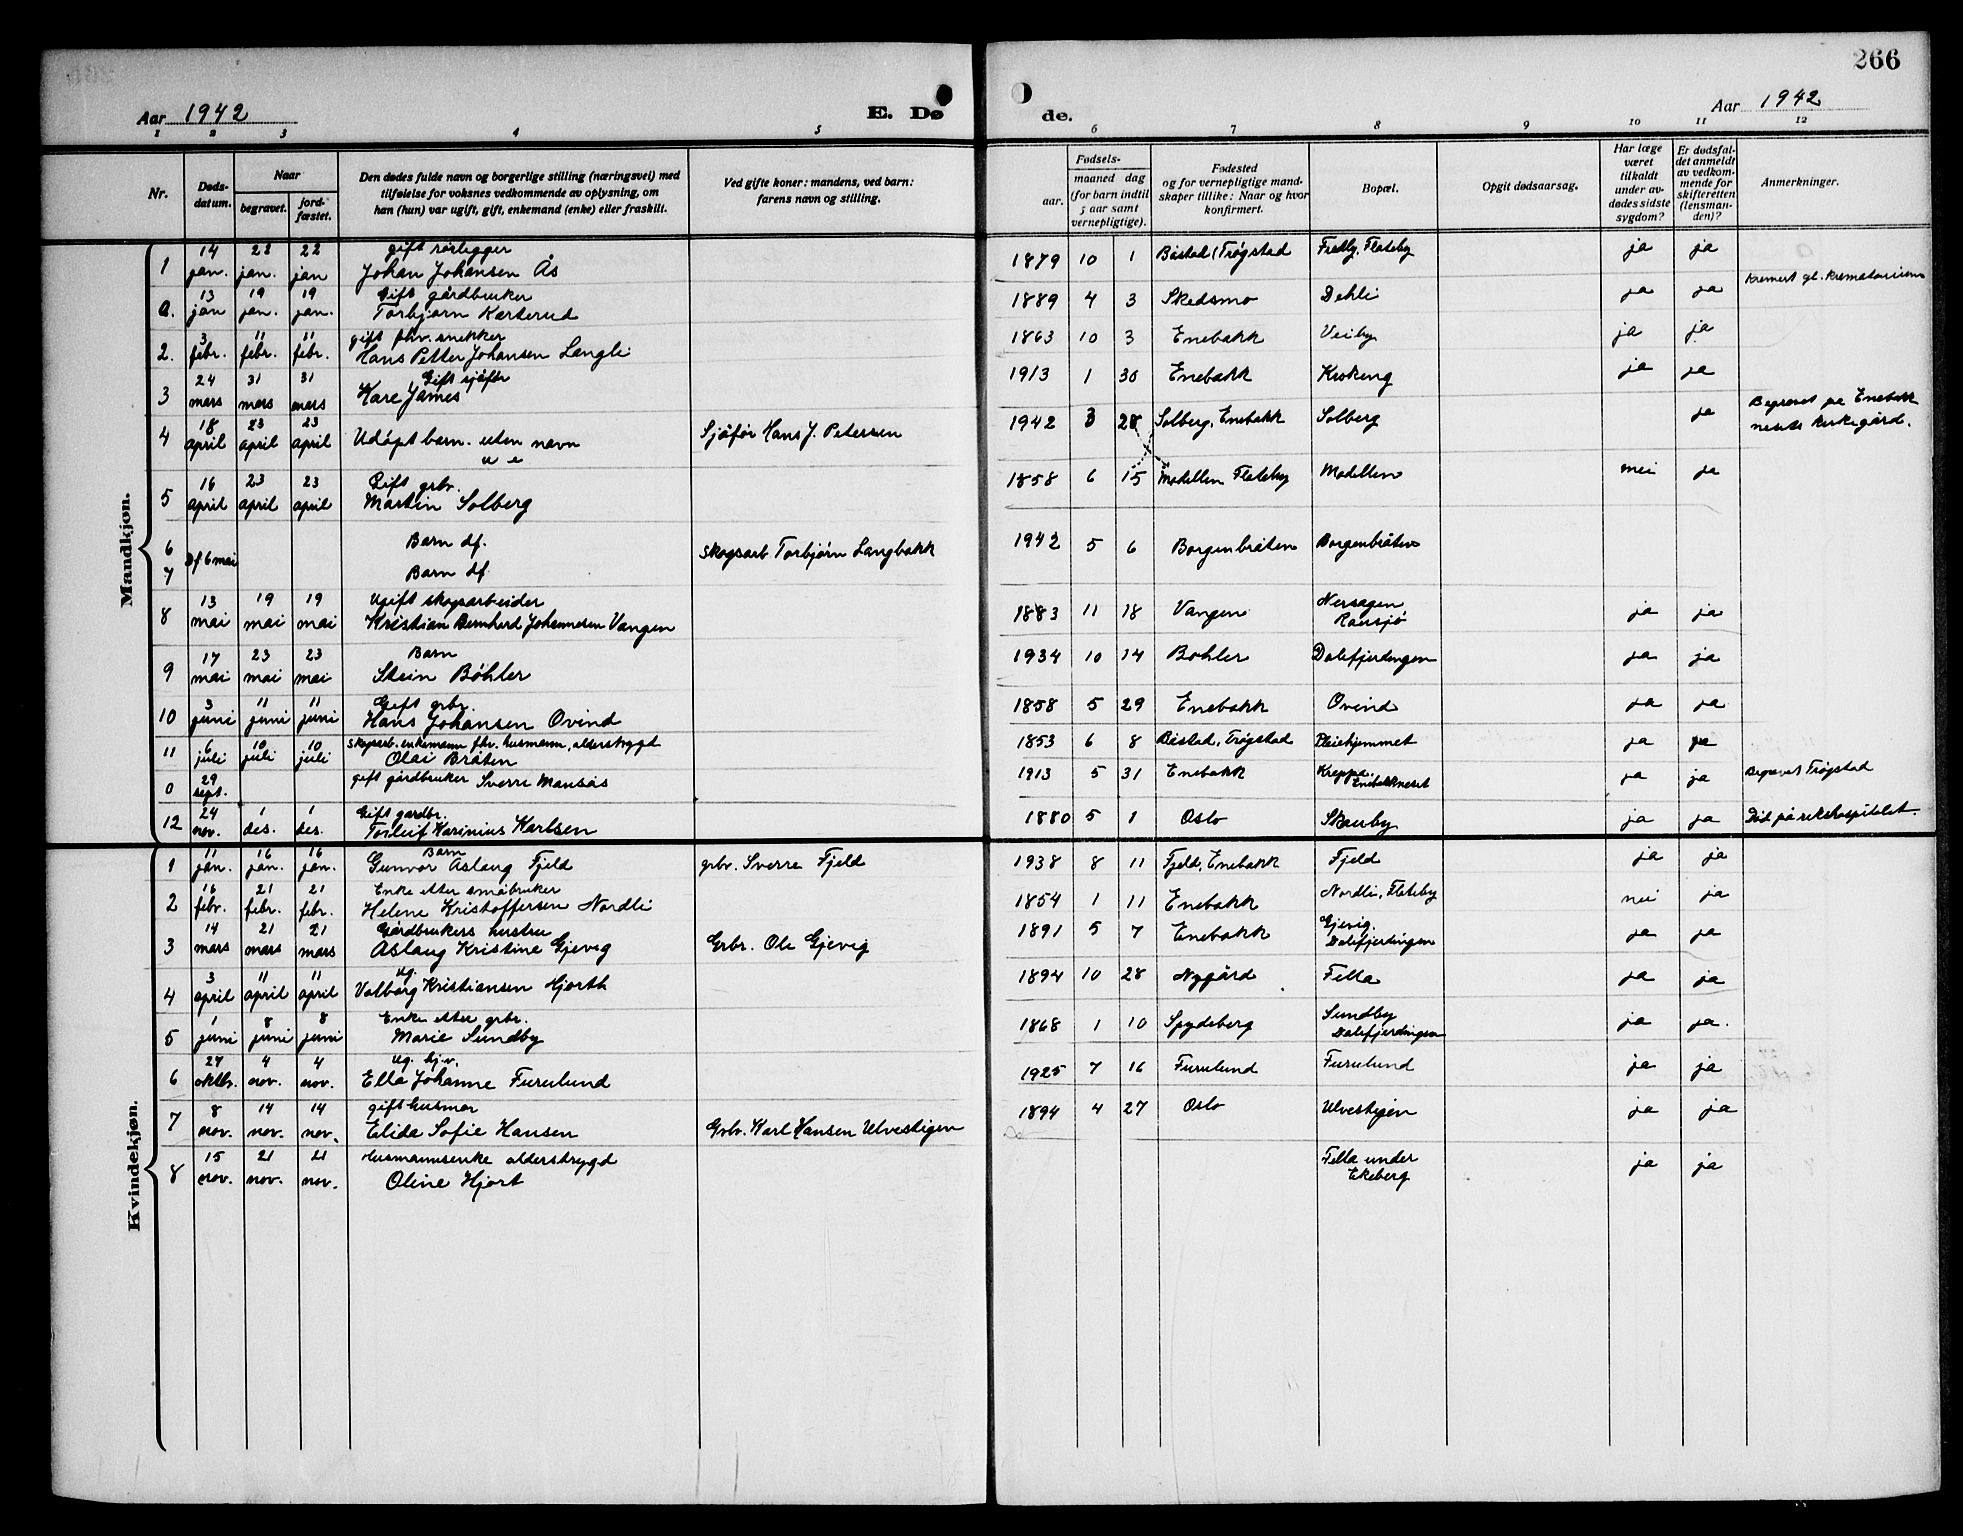 266
Aar 1942
E. Dø
de.
Aar 1942
1 2 3 4 5 6 7 8 9 10 11 12
Nr.
Døds-
datum.
Naar
begravet.
jord-
fæstet.
Den dødes fulde navn og borgerlige stilling (næringsvei) med
tilføielse for voksnes vedkommende av oplysning, om
han (hun) var ugift, gift, enkemand (enke) eller fraskilt.
Ved gifte koner: mandens, ved barn:
farens navn og stilling.
Fødsels-
aar.
maaned dag
(for barn indtil
5 aar samt
vernepligtige).
Fødested
og for vernepligtige mand-
skaper tillike: Naar og hvor
konfirmert.
Bopæl.
Opgit dødsaarsag.
Har læge
været
tilkaldt
under av-
dødes sidste
sygdom?
Er dødsfal-
det anmeldt
av vedkom-
mende for
skifteretten
(lensman-
den)?
Anmerkninger.
Mandkjøn.
14 23 22 gift rørlegger
1 jan. jan. jan Johan Johansen Ås 1879 10 1 Båstad (Trøgstad Fretby, Flateby ja ja
13 19 19 Gift gårdbruker
0. jan jan. jan. Torbjørn Karterud 1889 4 3 Skedsmo Dehli ja ja Kremert gl. krematorium
3 11 11 gift fhv. snekker
2. febr. febr. febr. Hans Petter Johansen Langli 1863 10 3 Enebakk Veiby ja ja
24 31 31 Gift sjåfør
3 mars mars mars Kare James 1913 1 30 Enebakk Krokeng ja ja
18 23 23
4 april april april Udøpt barn. uten navn Sjåfør Hans J. Petersen 1942 3 28 Solberg, Enebakk Solberg ja Begravet på Enebakk
u e nesets kirkegård.
16 23 23 Gift grbr.
5 april april april Martin Solberg 1858 6 15 Modellen Flateby Modellen nei ja
6 Df 6 mai Barn df. Skogsarb Torbjørn Langbakk 1942 5 6 Borgenbråten Borgenbråten
7 Barn df
13 19 19 Ugift skogsarbeider
8 mai mai mai Kristian Bernhard Johannesen Vangen 1883 11 18 Vangen Nersagen ja ja
Rausjø
17 23 23 Barn
9 mai mai mai Stein Bøhler 1934 10 14 Bøhler Dalefjerdingen ja ja
3 11 11 Gift grbr.
10 juni juni juni Hans Johansen Ovind 1858 5 29 Enebakk Ovind ja ja
6 10 10 Skogsarb. enkemann fhv. husmann, alderstrygd
11 juli juli juli Olai Bråten 1853 6 8 Båstad, Trøgstad Pleiehjemmet ja ja
29
0 sept. gift gårdbruker Sverre Mansås 1913 5 31 Enebakk Kreppa ja ja Begravet Trøgstad
Enebakkneset
24 1 1 Gift gardbr.
12 nov. des. des. Torleif Karinius Karlsen 1880 5 1 Oslo Skauby ja ja Död på rikshospitalet.
Kvindekjøn.
11 16 16 Barn
1 jan. jan. jan. Gunvor Aslaug Fjeld grbr. Sverre Fjeld 1938 8 11 Fjeld, Enebakk Fjeld ja ja
16 21 21 Enke etter småbruker
2 febr. febr. febr. Helene Kristoffersen Nordli 1854 1 11 Enebakk Nordli, Flateby nei ja
14 21 21 Gårdbrukers hustru
3 mars mars mars Aslaug Kristine Gjevig Grbr. Ole Gjevig 1891 5 7 Enebakk Gjevig. ja ja
Dalefjerdingen
3 11 11 Ug.
4 april april april Valborg Kristiansen Hjorth 1894 10 28 Nygård Fella ja ja
1 8 8 Enke etter grbr.
5 juni juni juni Marie Sundby 1868 1 10 Spydeberg Sundby ja ja.
Dalefjerdingen
27 4 4 Ug. hj.v.
6 oktbr. nov. nov. Ella Johanne Furulund 1925 7 16 Furulund Furulund ja ja
8 14 14 gift husmor
7 nov. nov. nov. Elida Sofie Hansen Grbr. Karl Hansen Ulvestigen 1894 4 27 Oslo Ulvestigen ja ja
15 21 21 Husmannsenke alderstrygd
8 nov. nov. nov. Oline Hjort Fella under ja ja
Ekeberg